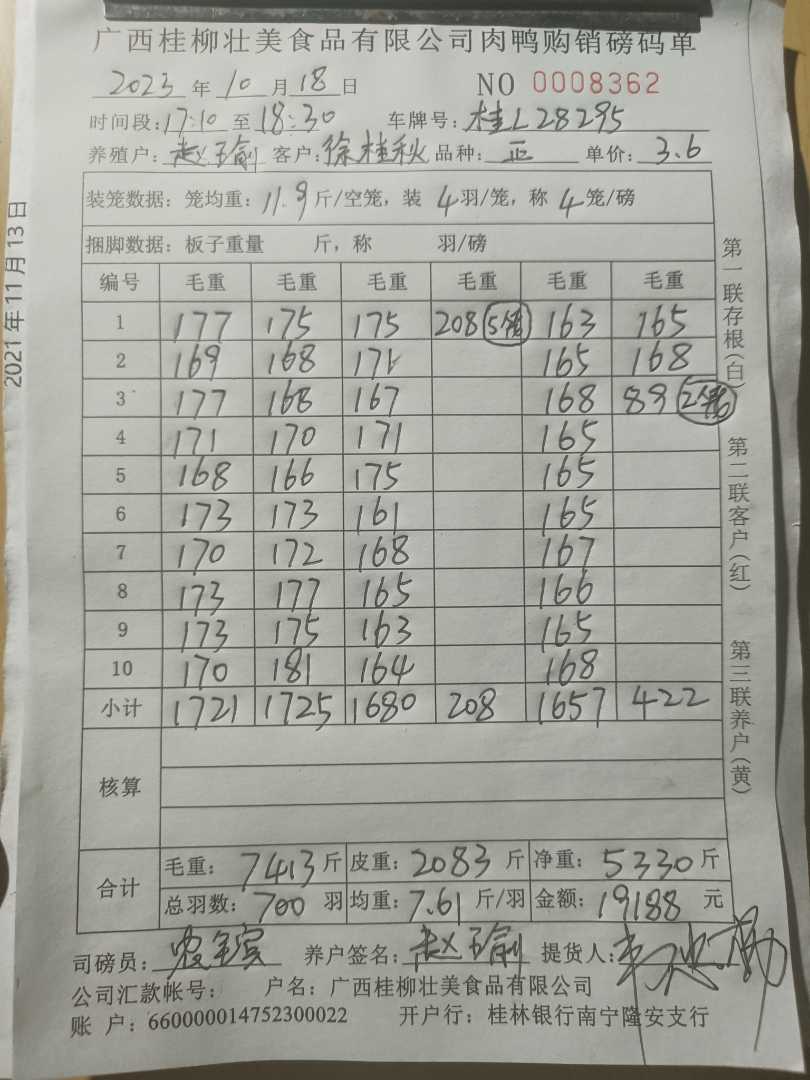 广西桂柳壮美食品有限公司肉鸭购销磅码单
2023 年 10 月 18 日 NO 0008362
时间段: 17:10 至 18:30 车牌号: 桂L28295
养殖户: 赵 客户: 徐桂秋 品种: 正 单价: 3.6
装笼数据: 笼均重: 11.9 斤/空笼, 装 4 羽/笼, 称 4 笼/磅
捆脚数据: 板子重量 斤, 称 羽/磅
编号 毛重 毛重 毛重 毛重 毛重 毛重
1 177 175 175 208 5笼 163 165
2 169 168 171 165 168
3 177 168 167 168 89 2笼
4 171 170 171 165
5 168 166 175 165
6 173 173 161 165
7 170 172 168 167
8 173 177 165 166
9 173 175 163 165
10 170 181 164 168
小计 1721 1725 1680 208 1657 422
核算
合计 毛重: 7413 斤 皮重: 2083 斤 净重: 5330 斤
总羽数: 700 羽 均重: 7.61 斤/羽 金额: 19188 元
司磅员: 养户签名: 赵 提货人:
公司汇款帐号: 户名: 广西桂柳壮美食品有限公司
账 户: 660000014752300022 开户行: 桂林银行南宁隆安支行
第一联存根(白) 第二联客户(红) 第三联养户(黄)
2021 年 11 月 13 日